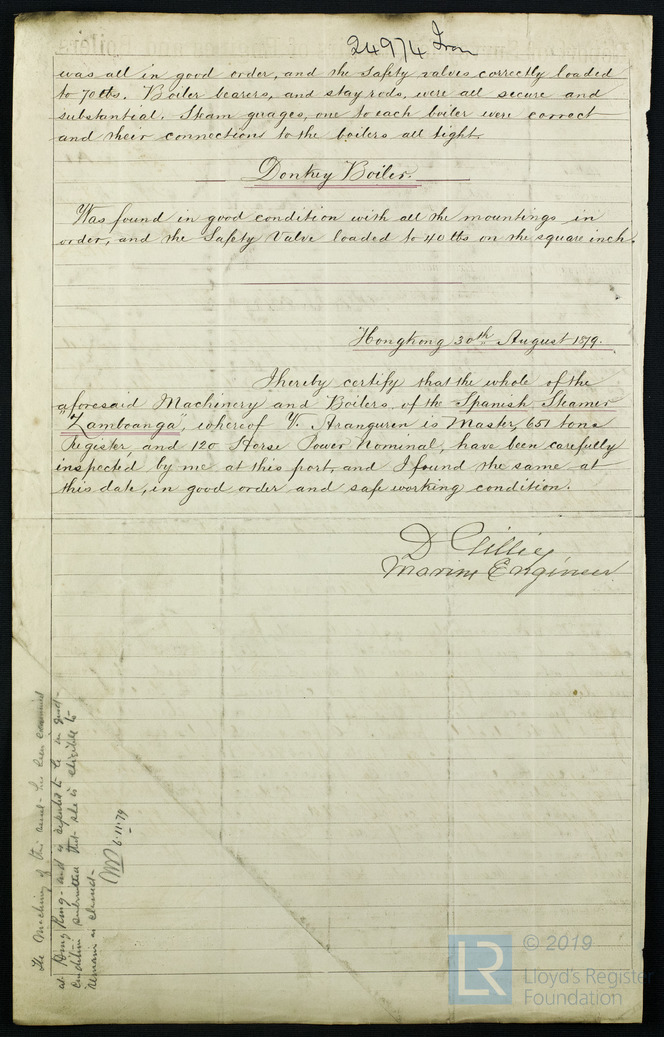 24974 Iron
was all in good order, and the Safety valves correctly loaded
to 70 lbs. Boiler bearers, and stay rods, were all secure and
substantial. Steam guages, one to each boiler were correct
and their connection to the boilers all tight.
Donkey Boiler.
Was found in good condition with all the mountings in
order, and the Safety Valve loaded to 40 lbs on the square inch.
Hongkong 30th August 1879.
I hereby certify that the whole of the
aforesaid Machinery and Boilers, of the Spanish Steamer
"Zamboanga", whereof V. Aranguren is Master, 651 tons
Register, and 120 Horse Power Nominal, have been carefully
inspected by me at this port, and I found the same at
this date, in good order and safe working condition.
D Gillies
Marine Engineer
The Machinery of this vessel has been examined
at Hong Kong and is reported to be in good
condition submitted that she is eligible to
remain as classed
6.11.79
LR © 2019
Lloyd's Register
Foundation